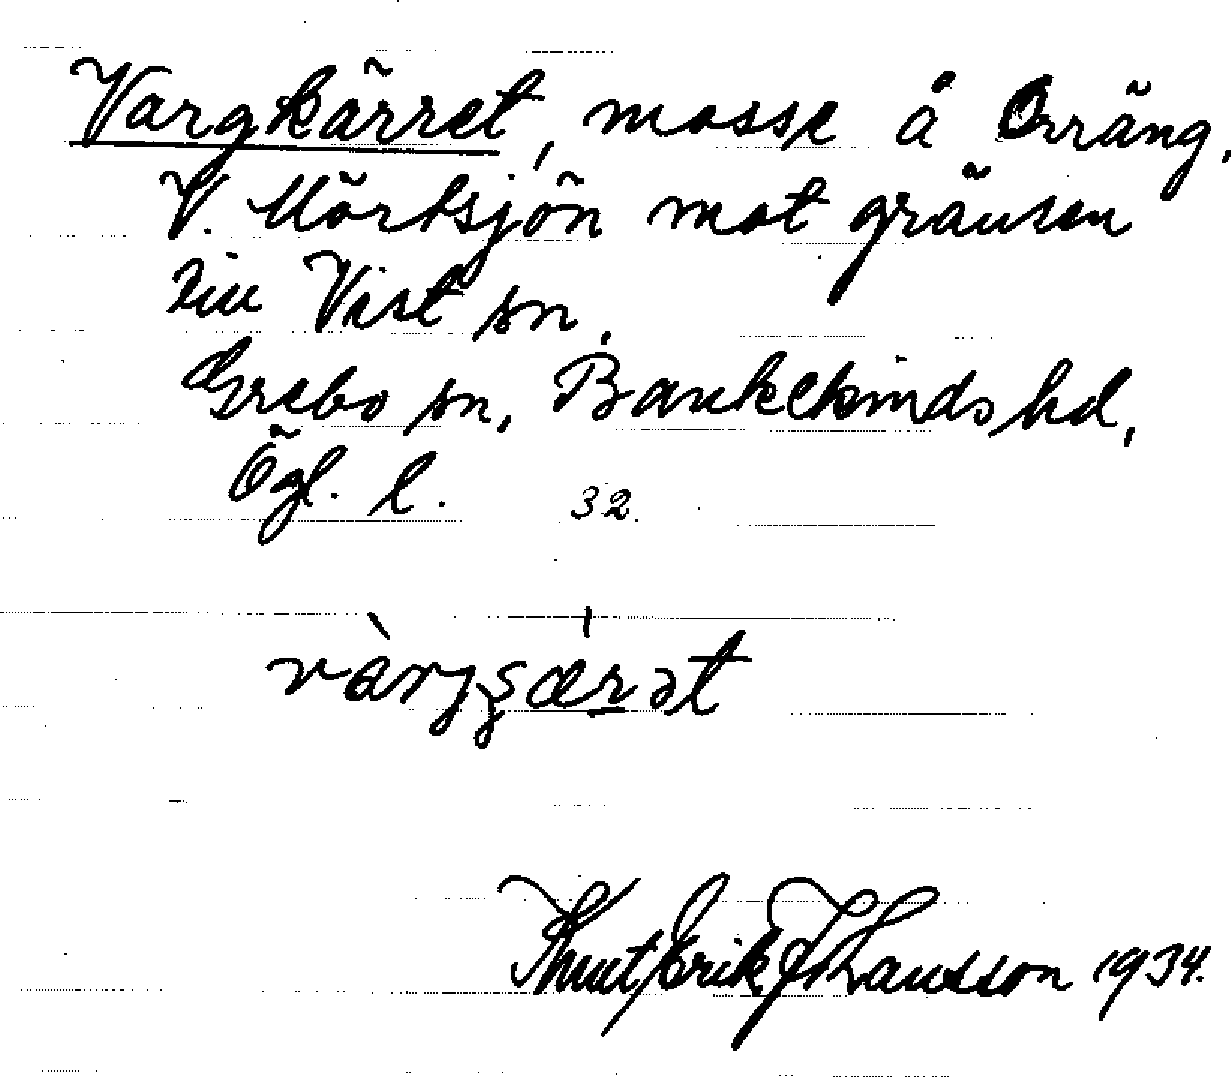 Vargkärret, mosse å Orräng,
V. Mörksjön mot gränsen
till Vist sn,
Grebo sn, Bankekinds hd,
Ögl. l. 32.
Knut Erik Johansson 1934.